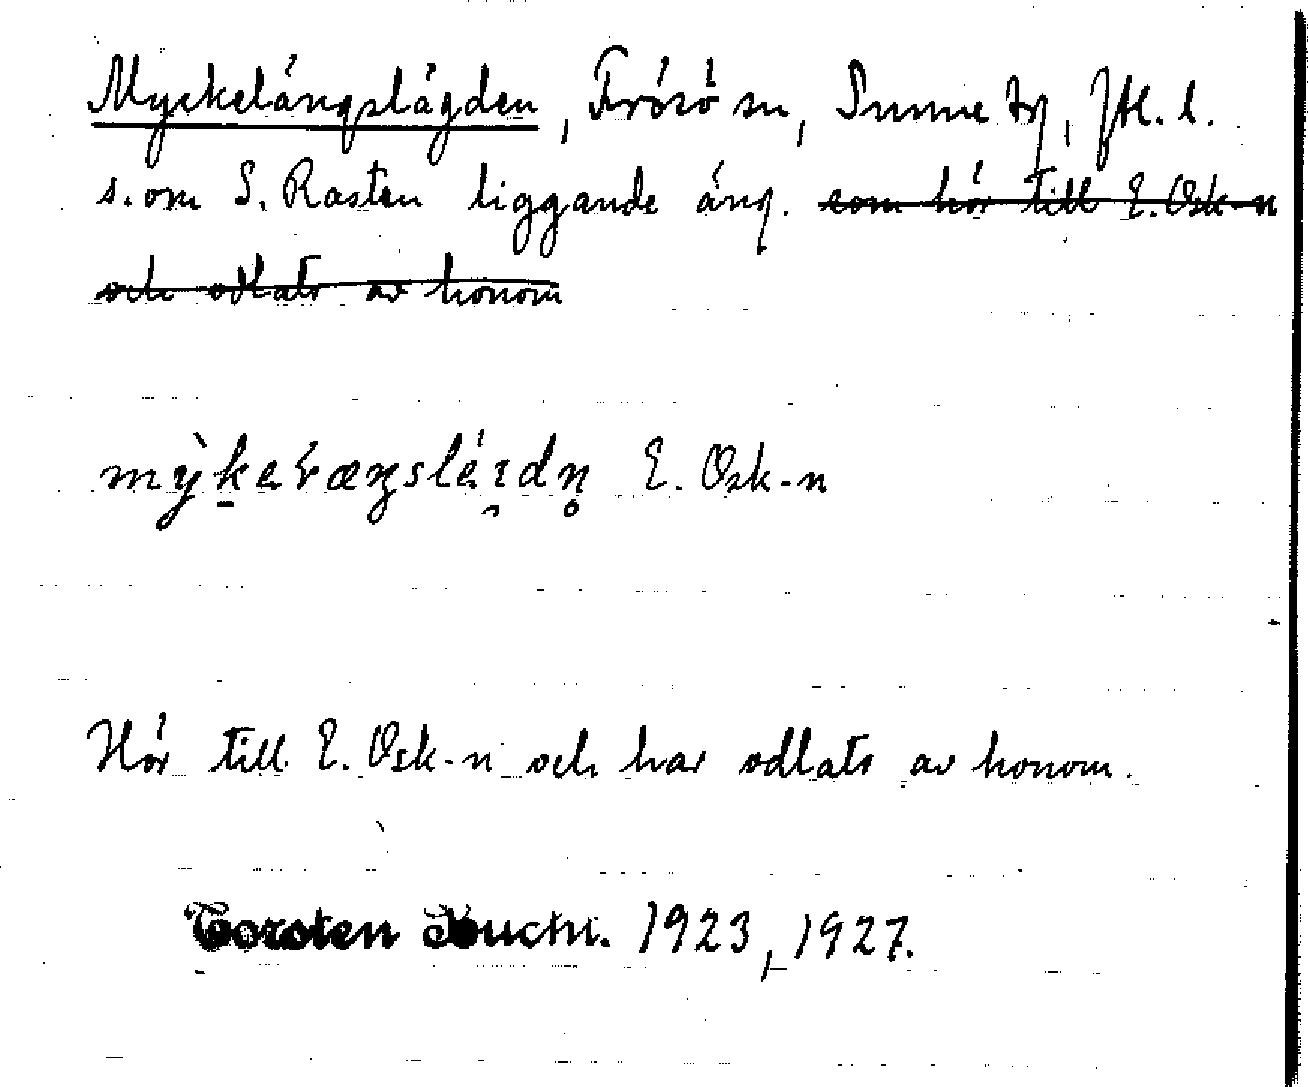 Myckelängslägden, Frösö sn, Sunne tg, Jtl. l.
s. om S. Rasten liggande äng. som hör till E. Osk-n
och odlats av honom
E. Osk-n
Hör till E. Osk-n och har odlats av honom.
Torsten 1923, 1927.